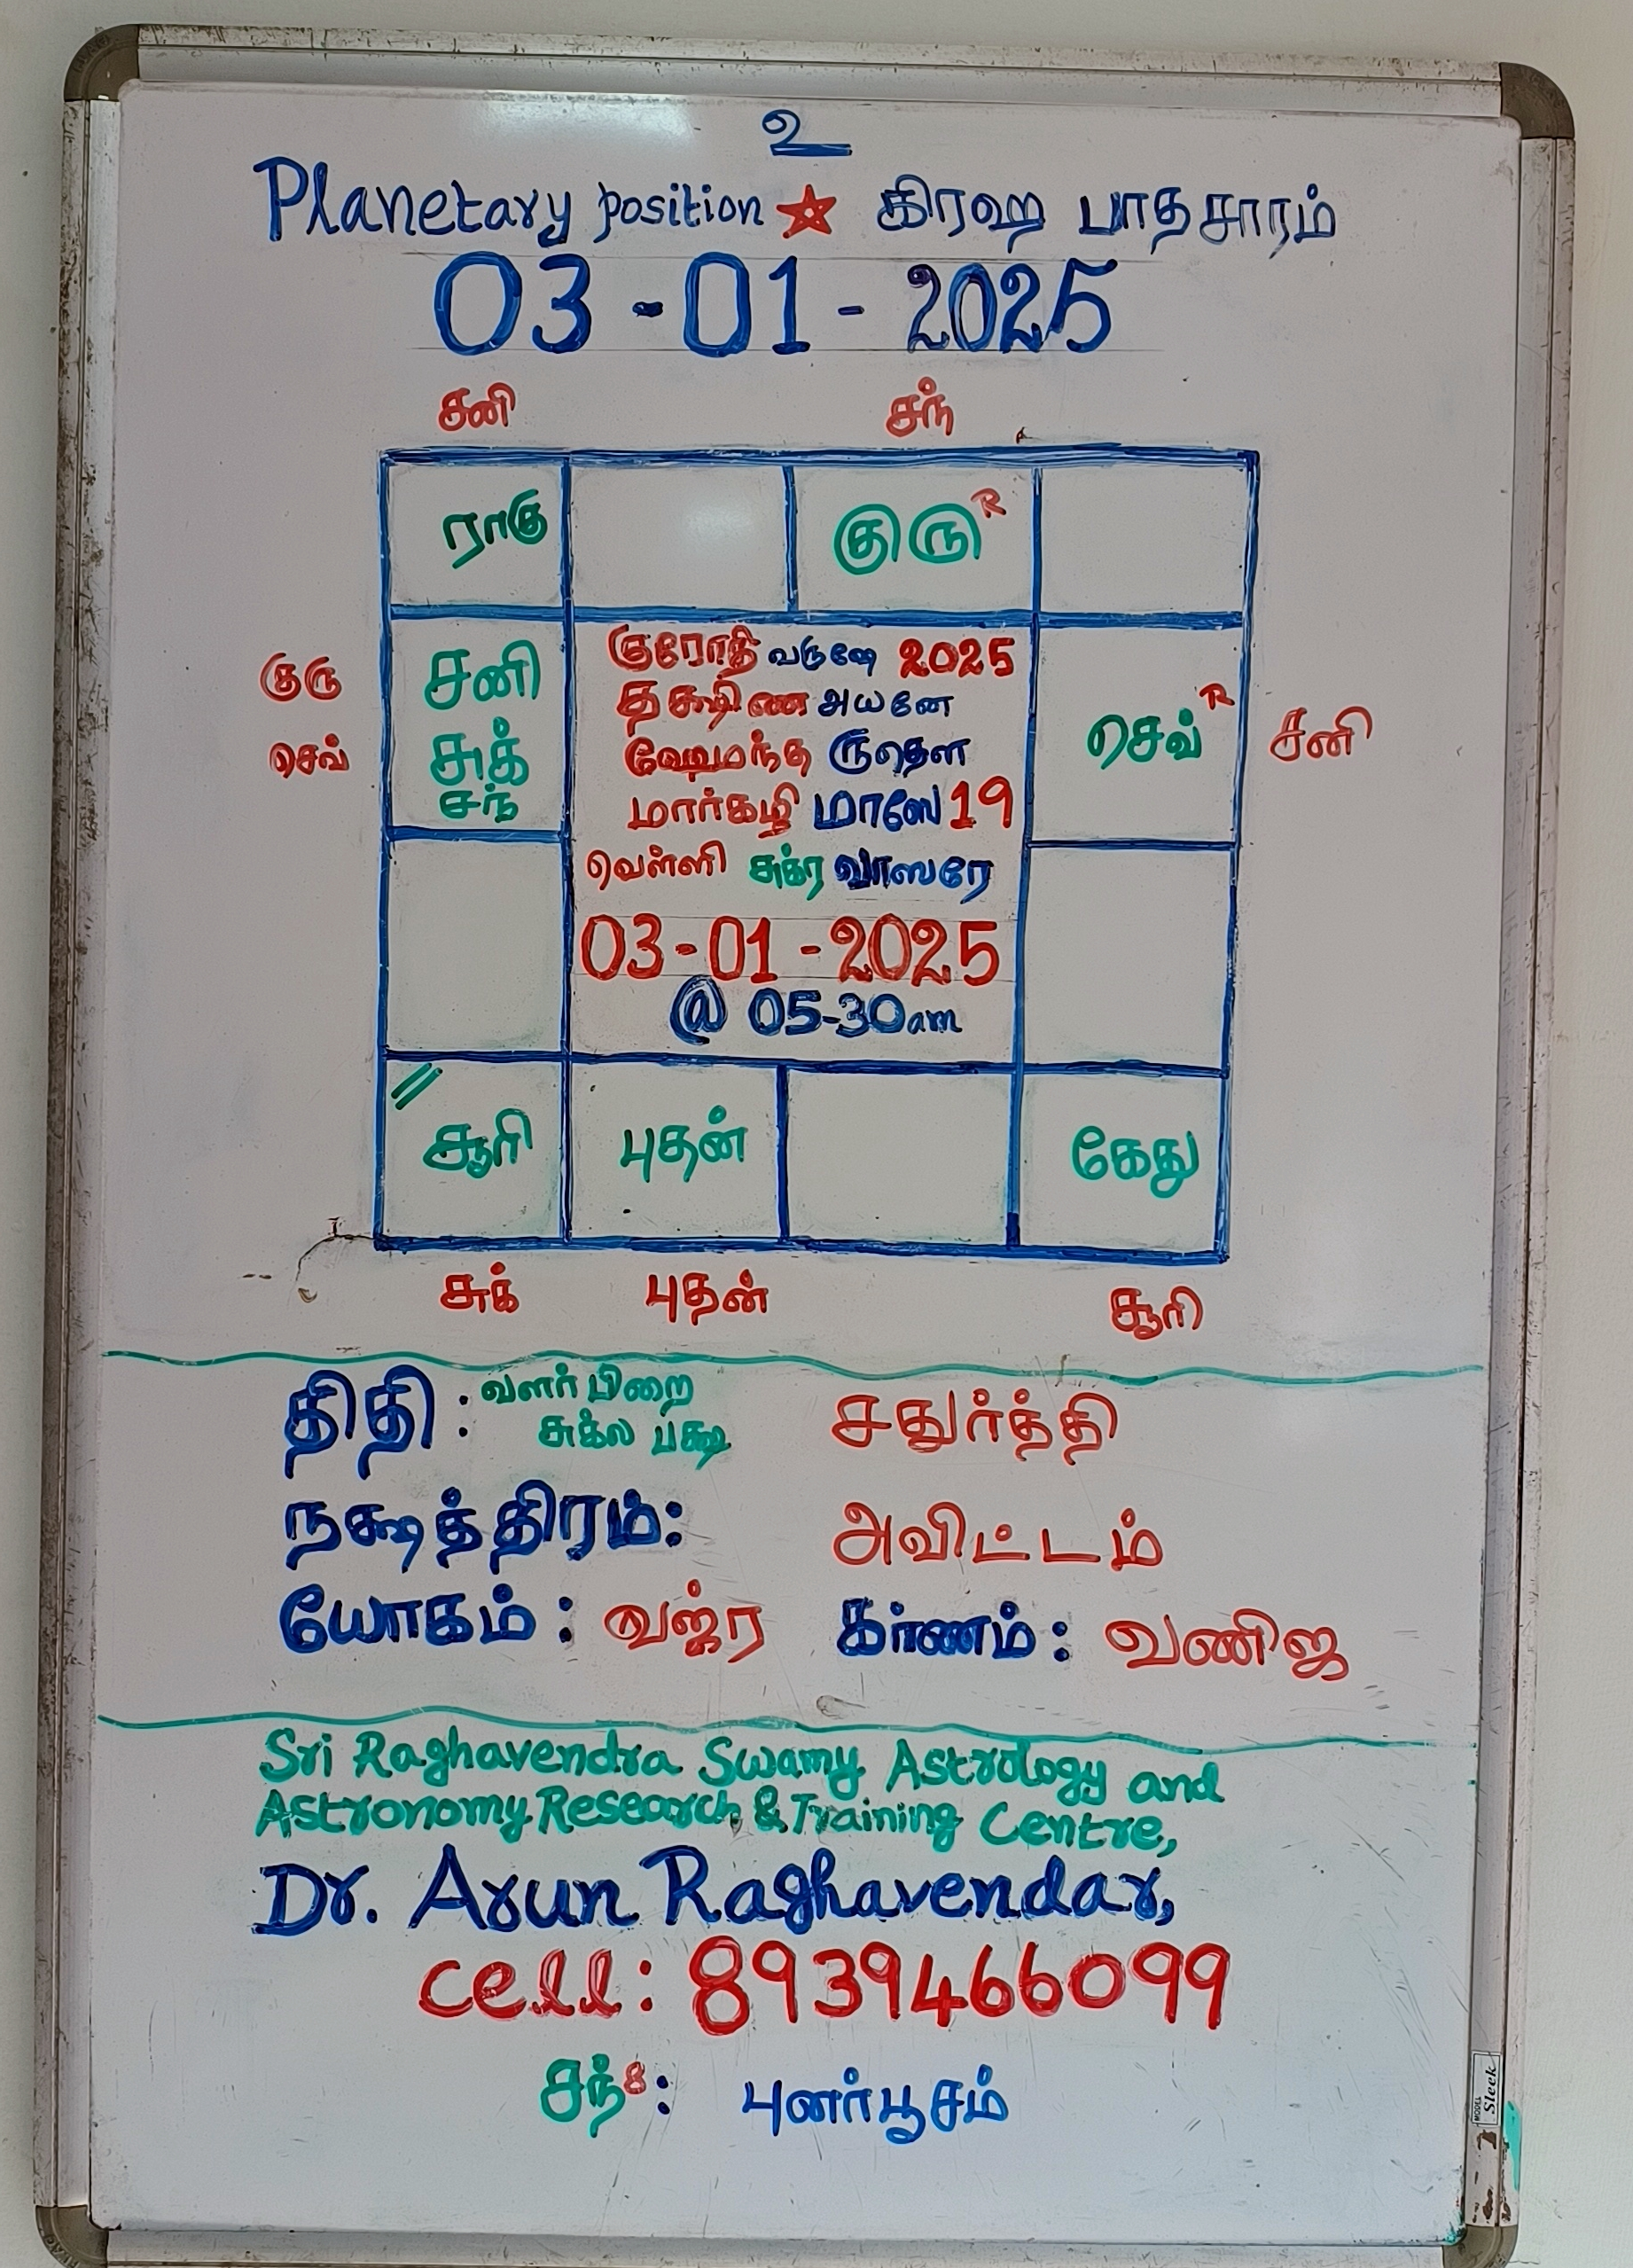 உ
Planetary position ★ கிரஹ பாதசாரம்
03-01-2025
சனி சந்
ராகு குரு R
குரு
செவ்
சனி
சுக்
சந்
குரோதி வருஷே 2025
தக்ஷிண அயனே
ஹேமந்த ருதௌ
மார்கழி மாஸே 19
வெள்ளி சுக்ர வாஸரே
03-01-2025
@ 05-30am
செவ் R சனி
சூரி புதன் கேது
சுக் புதன் சூரி
திதி : வளர்பிறை சதுர்த்தி
சுக்ல பக்ஷ
நக்ஷத்திரம்: அவிட்டம்
யோகம் : வஜ்ர கர்ணம் : வணிஜ
Sri Raghavendra Swamy Astrology and
Astronomy Research & Training Centre,
Dr. Arun Raghavendar,
cell: 8939466099
சந் 8 : புனர்பூசம்
MODEL
Sleek